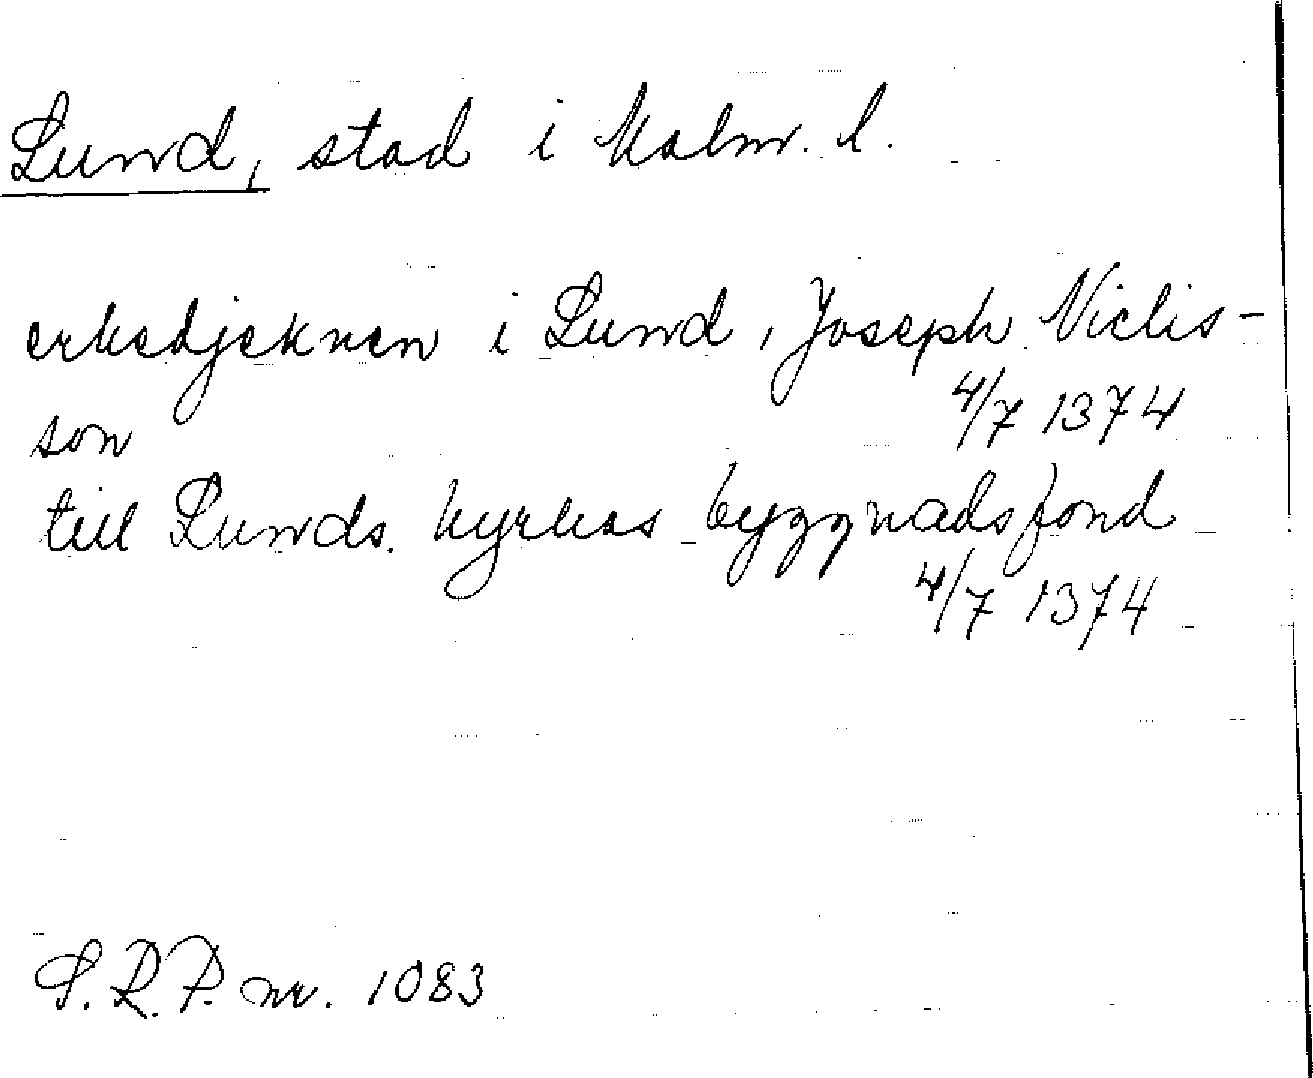 Lund, stad i Malm. l.
erkedjeknen i Lund, Joseph Niclis-
son 4/7 1374
till Lunds kyrkas byggnadsfond
4/7 1374
S.R.P. nr. 1083